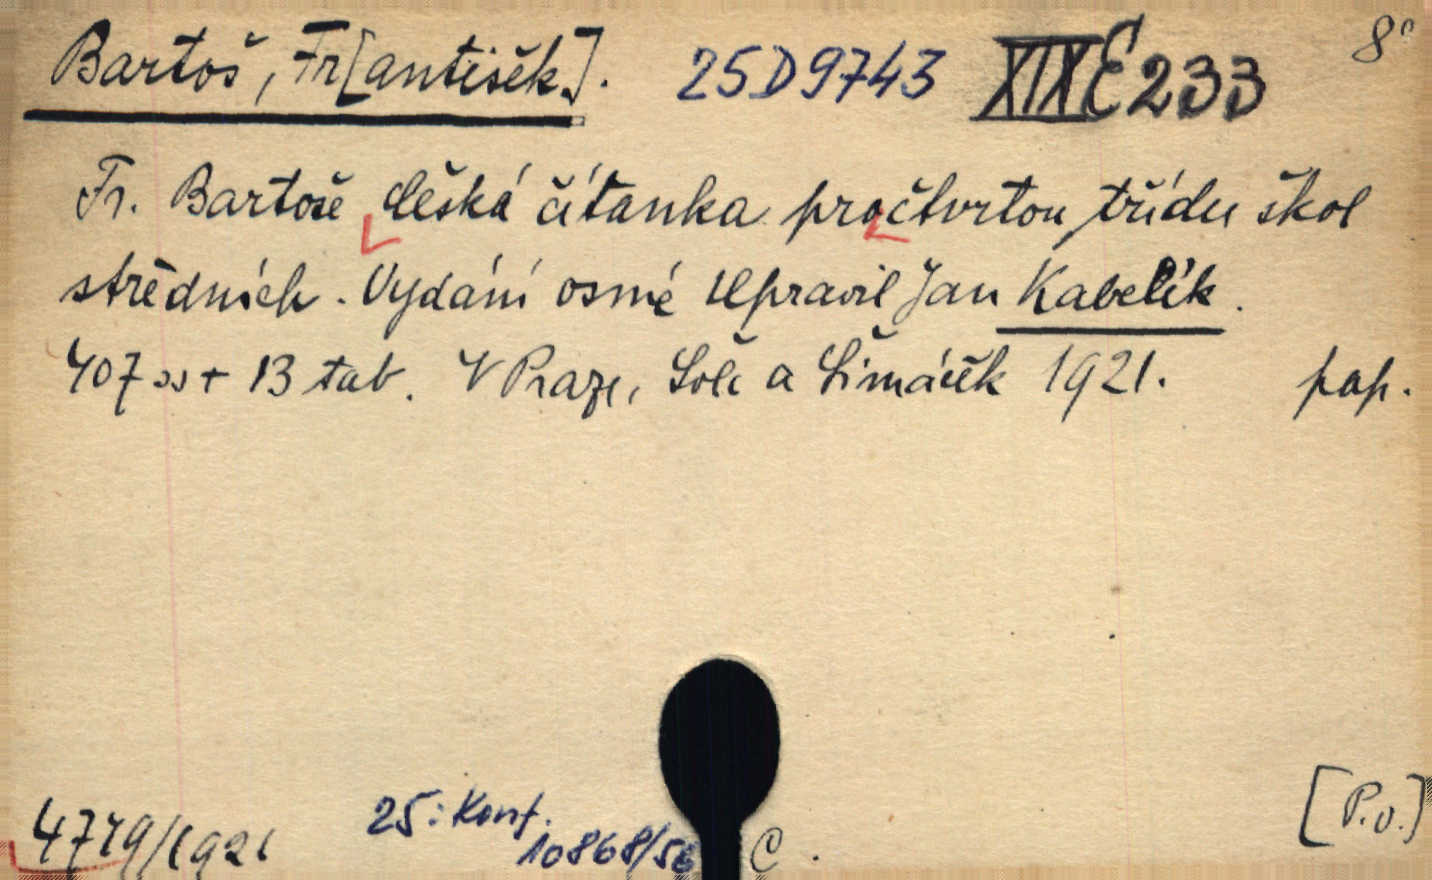 Bartoš, Fr[antišek]. 25D9743 XIXE233 8°
Fr. Bartoše česká čítanka pro čtvrtou třídu škol
středních. Vydání osmé Upravil Jan Kabelík.
407 ss + 13 tab. V Praze, Šolc a Šimáček 1921. pap.
[P.v.]
4719/1921 25: Konf. 10868/56 C.